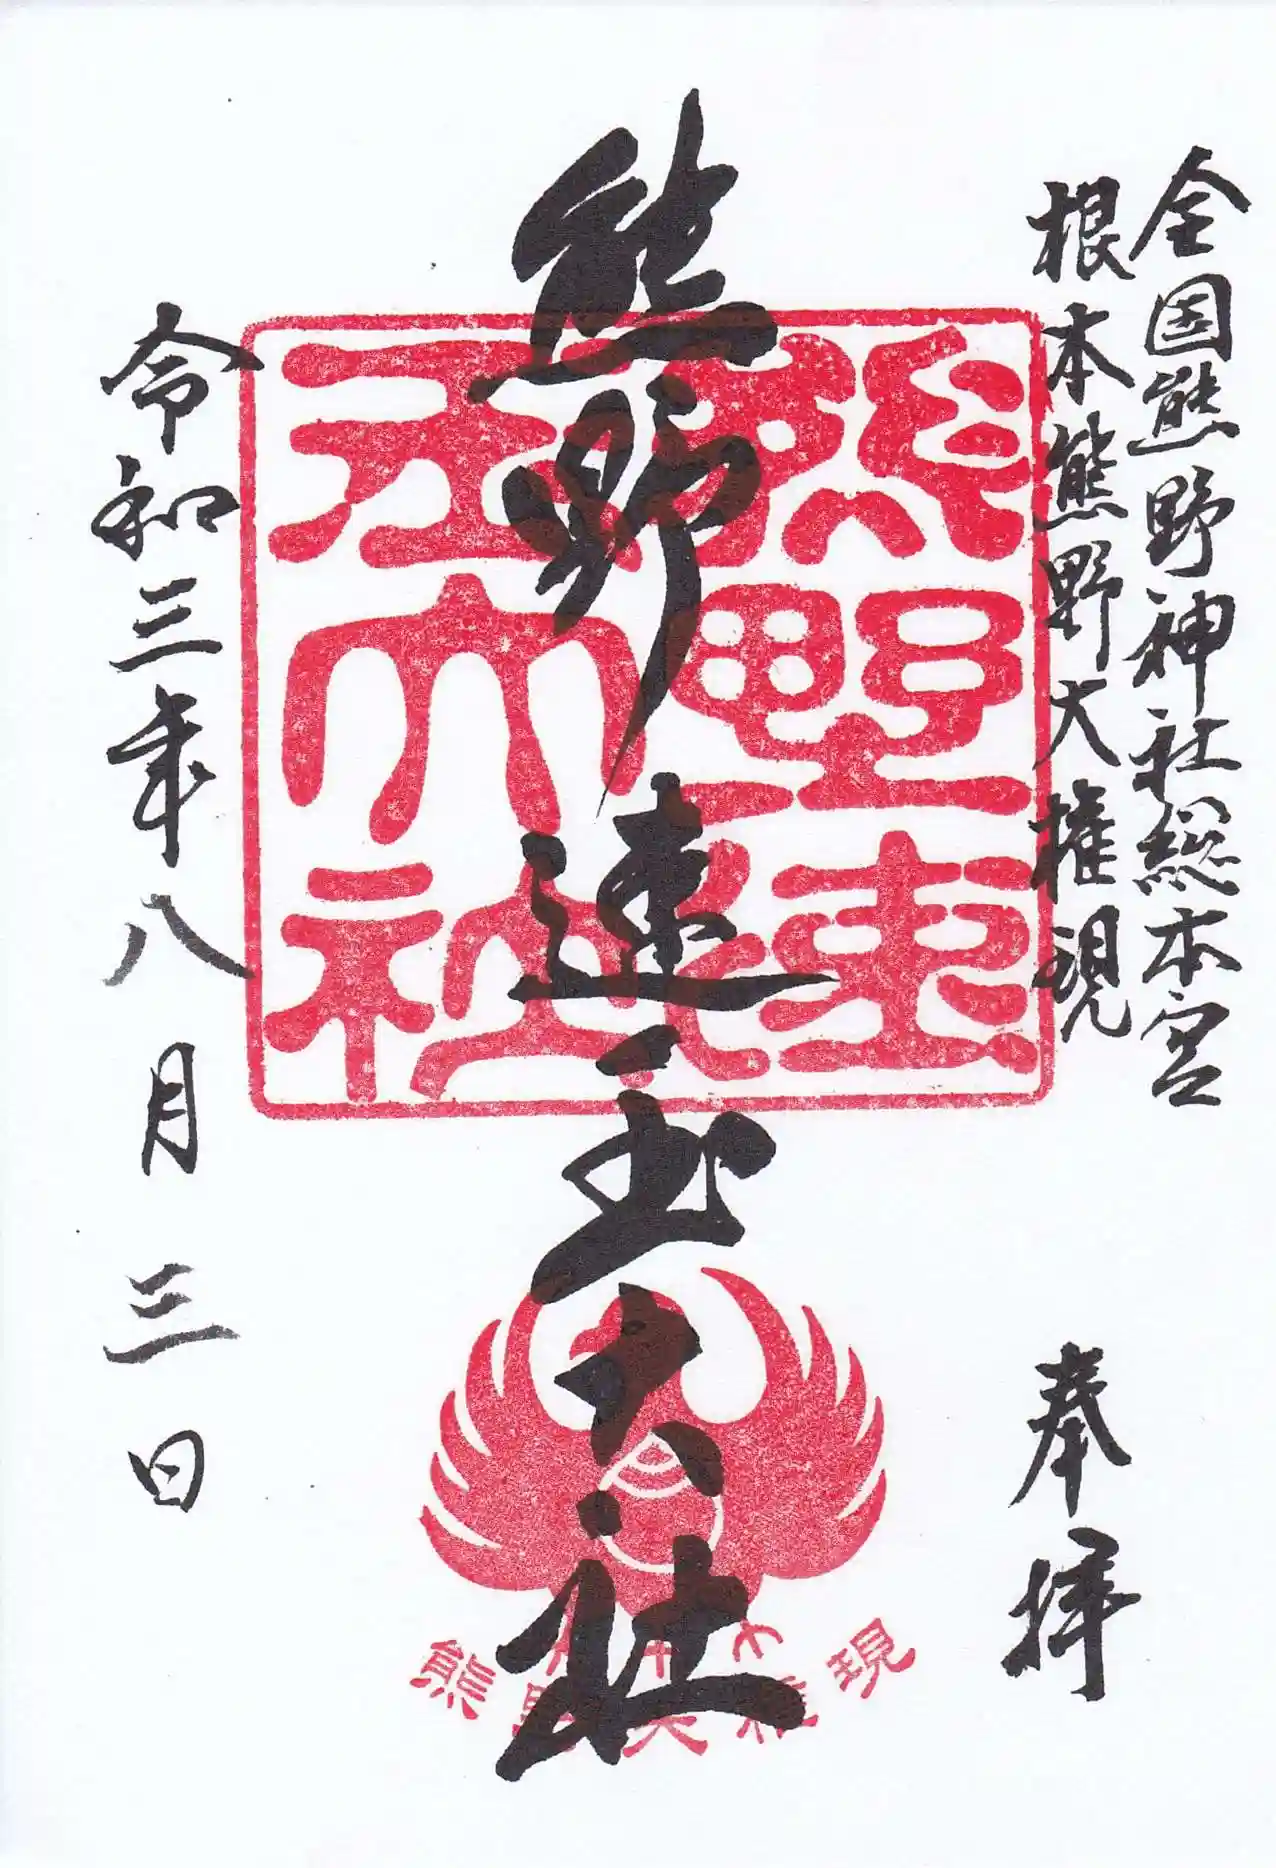 全国熊野神社総本宮
根本熊野大権現
奉拝
熊野速玉大社
熊野速玉大社
熊野大権現
令和三年八月三日